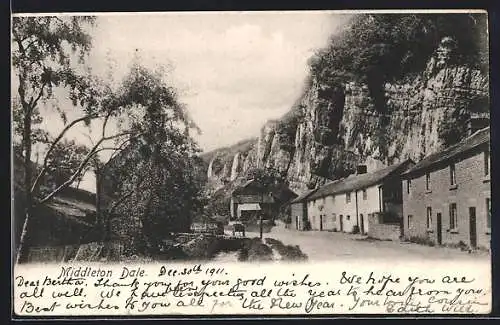 Middleton Dale. Dec. 30th 1911.
Dear Bertha, Thank you for your good wishes. We hope you are
all well. We have been respecting all the year to hear from you.
Best wishes to you all for the New Year. Your loving cousin
Edith